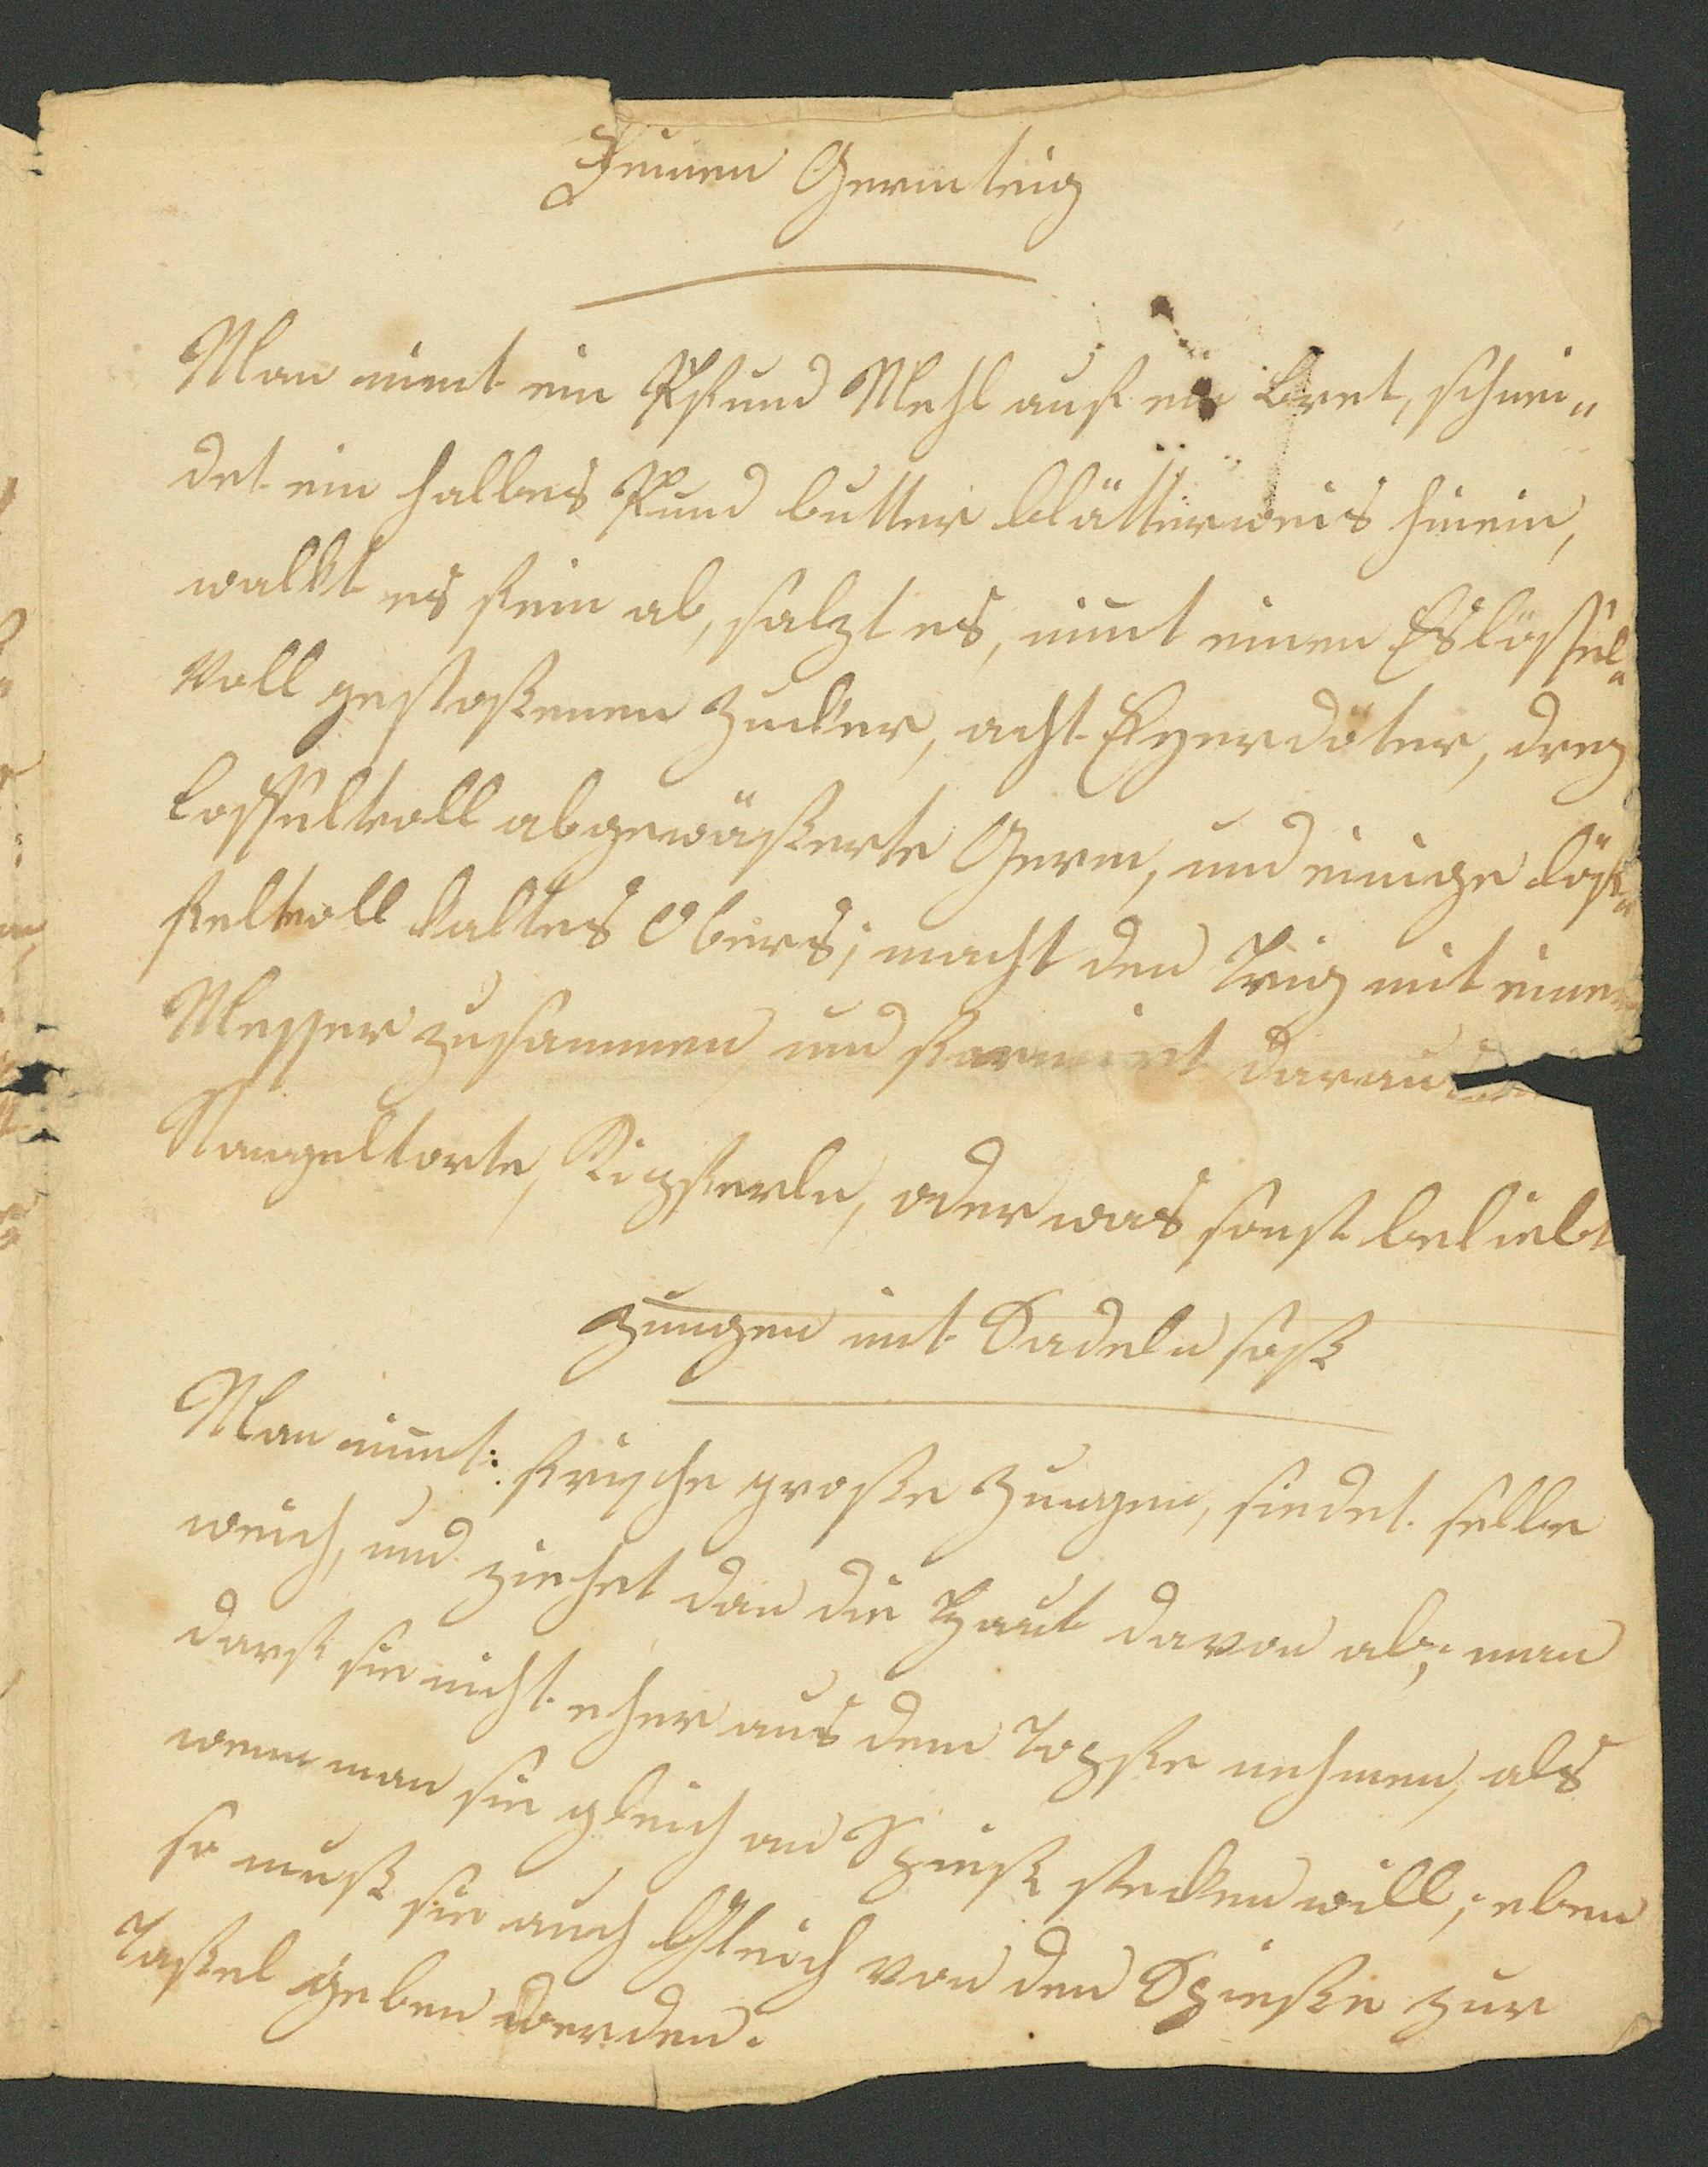 Feinen Germteig
Man nimt ein Pfund Mehl auf ein Bret, schnei„
det ein halbes Pfund butter blätterweis hinein,
walkt es fein ab, salzt es, nim̅t einen Eslöffel„
Voll gestoßenen Zucker, acht Eyerdöter, drey
Löffelvoll abgewäßerte Germ, und einige Löf„
felvoll kaltes Obers; macht den Teig mit einem
Messer zusammen und formiert daraus
Stangeltorte, Kipferln, oder was sonst beliebt
Zungen mit Sardeln soß
Man nim̅t: frische große Zungen, siedet selbe
weich, und ziehet dan die Haut davon ab; man
darf sie nicht eher aus dem Topfe nehmen, als
wenn man sie gleich an Spieß stecken will; eben
so muß sie auch Gleich von den Spieße zur
Taffel geben werden.